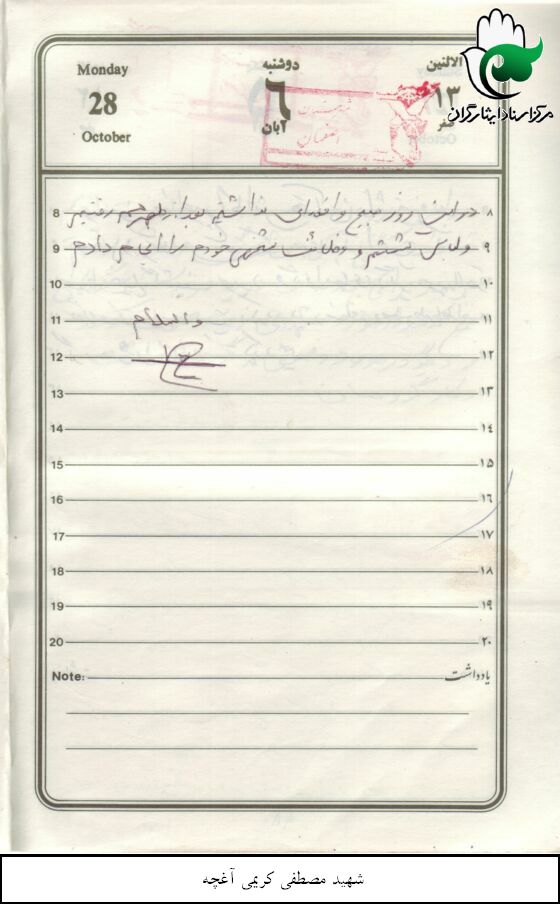 Monday دوشنبه الاثنین
28 ۶ ۱۳
October آبان صفر
مرکز اسناد ایثارگران
شهرستان
اصفهان
8 در این روز صبح واقعه‌ای نداشتم بعد از رفتیم ۸
9 و لباس شستم و شخصی خودم را انجام دادم ۹
10 ۱۰
11 والسلام ۱۱
12 ۱۲
13 ۱۳
14 ۱۴
15 ۱۵
16 ۱۶
17 ۱۷
18 ۱۸
19 ۱۹
20 ۲۰
Note: یادداشت
شهید مصطفی کریمی آغچه